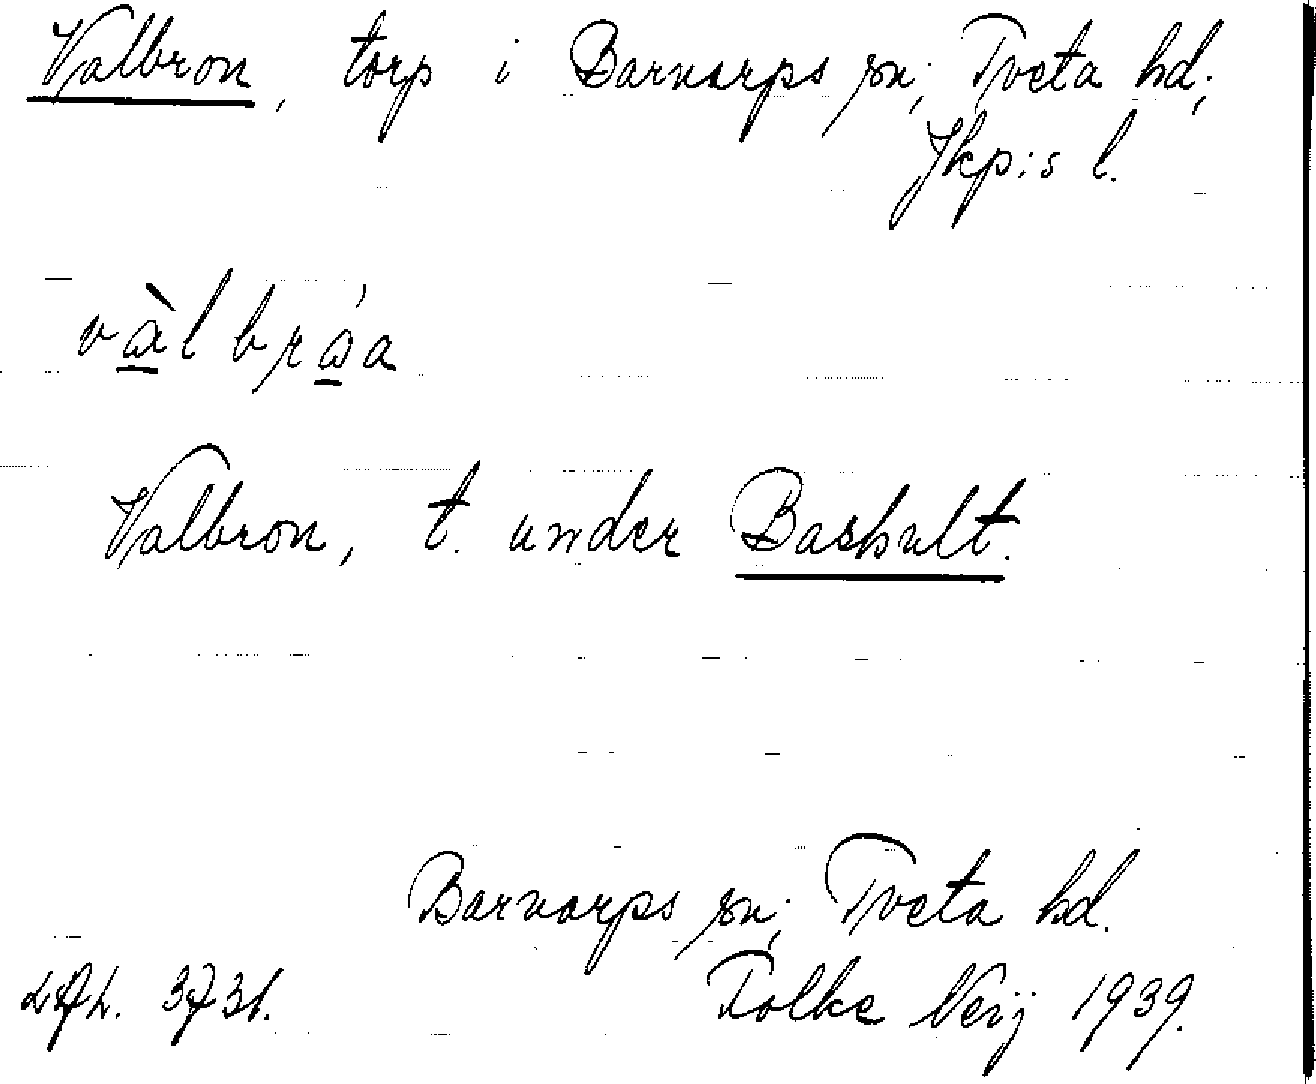 Valbron, torp i Barnarps sn; Tveta hd;
Jkp:s l.
Valbron, t. under Bashult.
Barnarps sn; Tveta hd.
Folke Neij 1939.